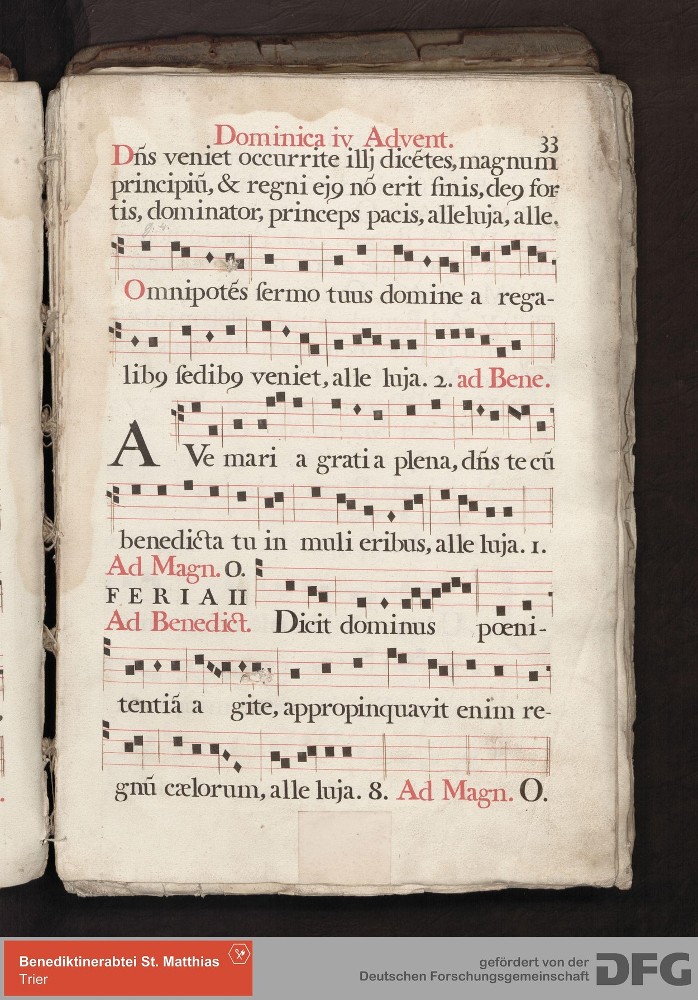 Dominica iv Advent. 33
Dn̄s veniet occurrite illj dicētes, magnum
principiū, & regni ejꝯ nō erit finis, deꝯ for
tis, dominator, princeps pacis, alleluja, alle.
Omnipotēs sermo tuus domine a rega-
libꝯ sedibꝯ veniet, alle luja. 2. ad Bene.
AVe mari a grati a plena, dn̄s te cū
benedicta tu in muli eribus, alle luja. 1.
Ad Magn. O.
FERIA II
Ad Benedict. Dicit dominus pœni-
tentiā a gite, appropinquavit enim re-
gnū cælorum, alle luja. 8. Ad Magn. O.
Benediktinerabtei St. Matthias
Trier
gefördert von der
Deutschen Forschungsgemeinschaft DFG